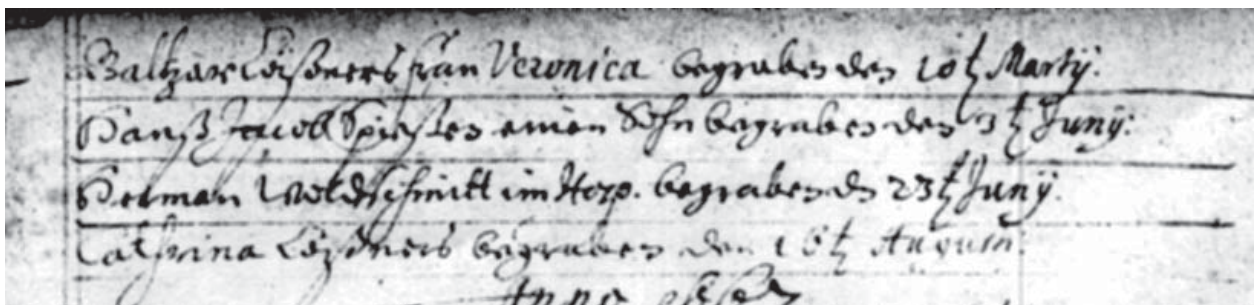 Baltzar Leißners fraŭ Veronica begraben den 10t Martÿ.
Hanß Jacob Spießen einen Sohn begraben den 3t Junÿ:
Herman Waldschmitt im Hosp. begraben dn 23t Junÿ.
Cathrina Leißners begraben den 16t Augusti.
Anno